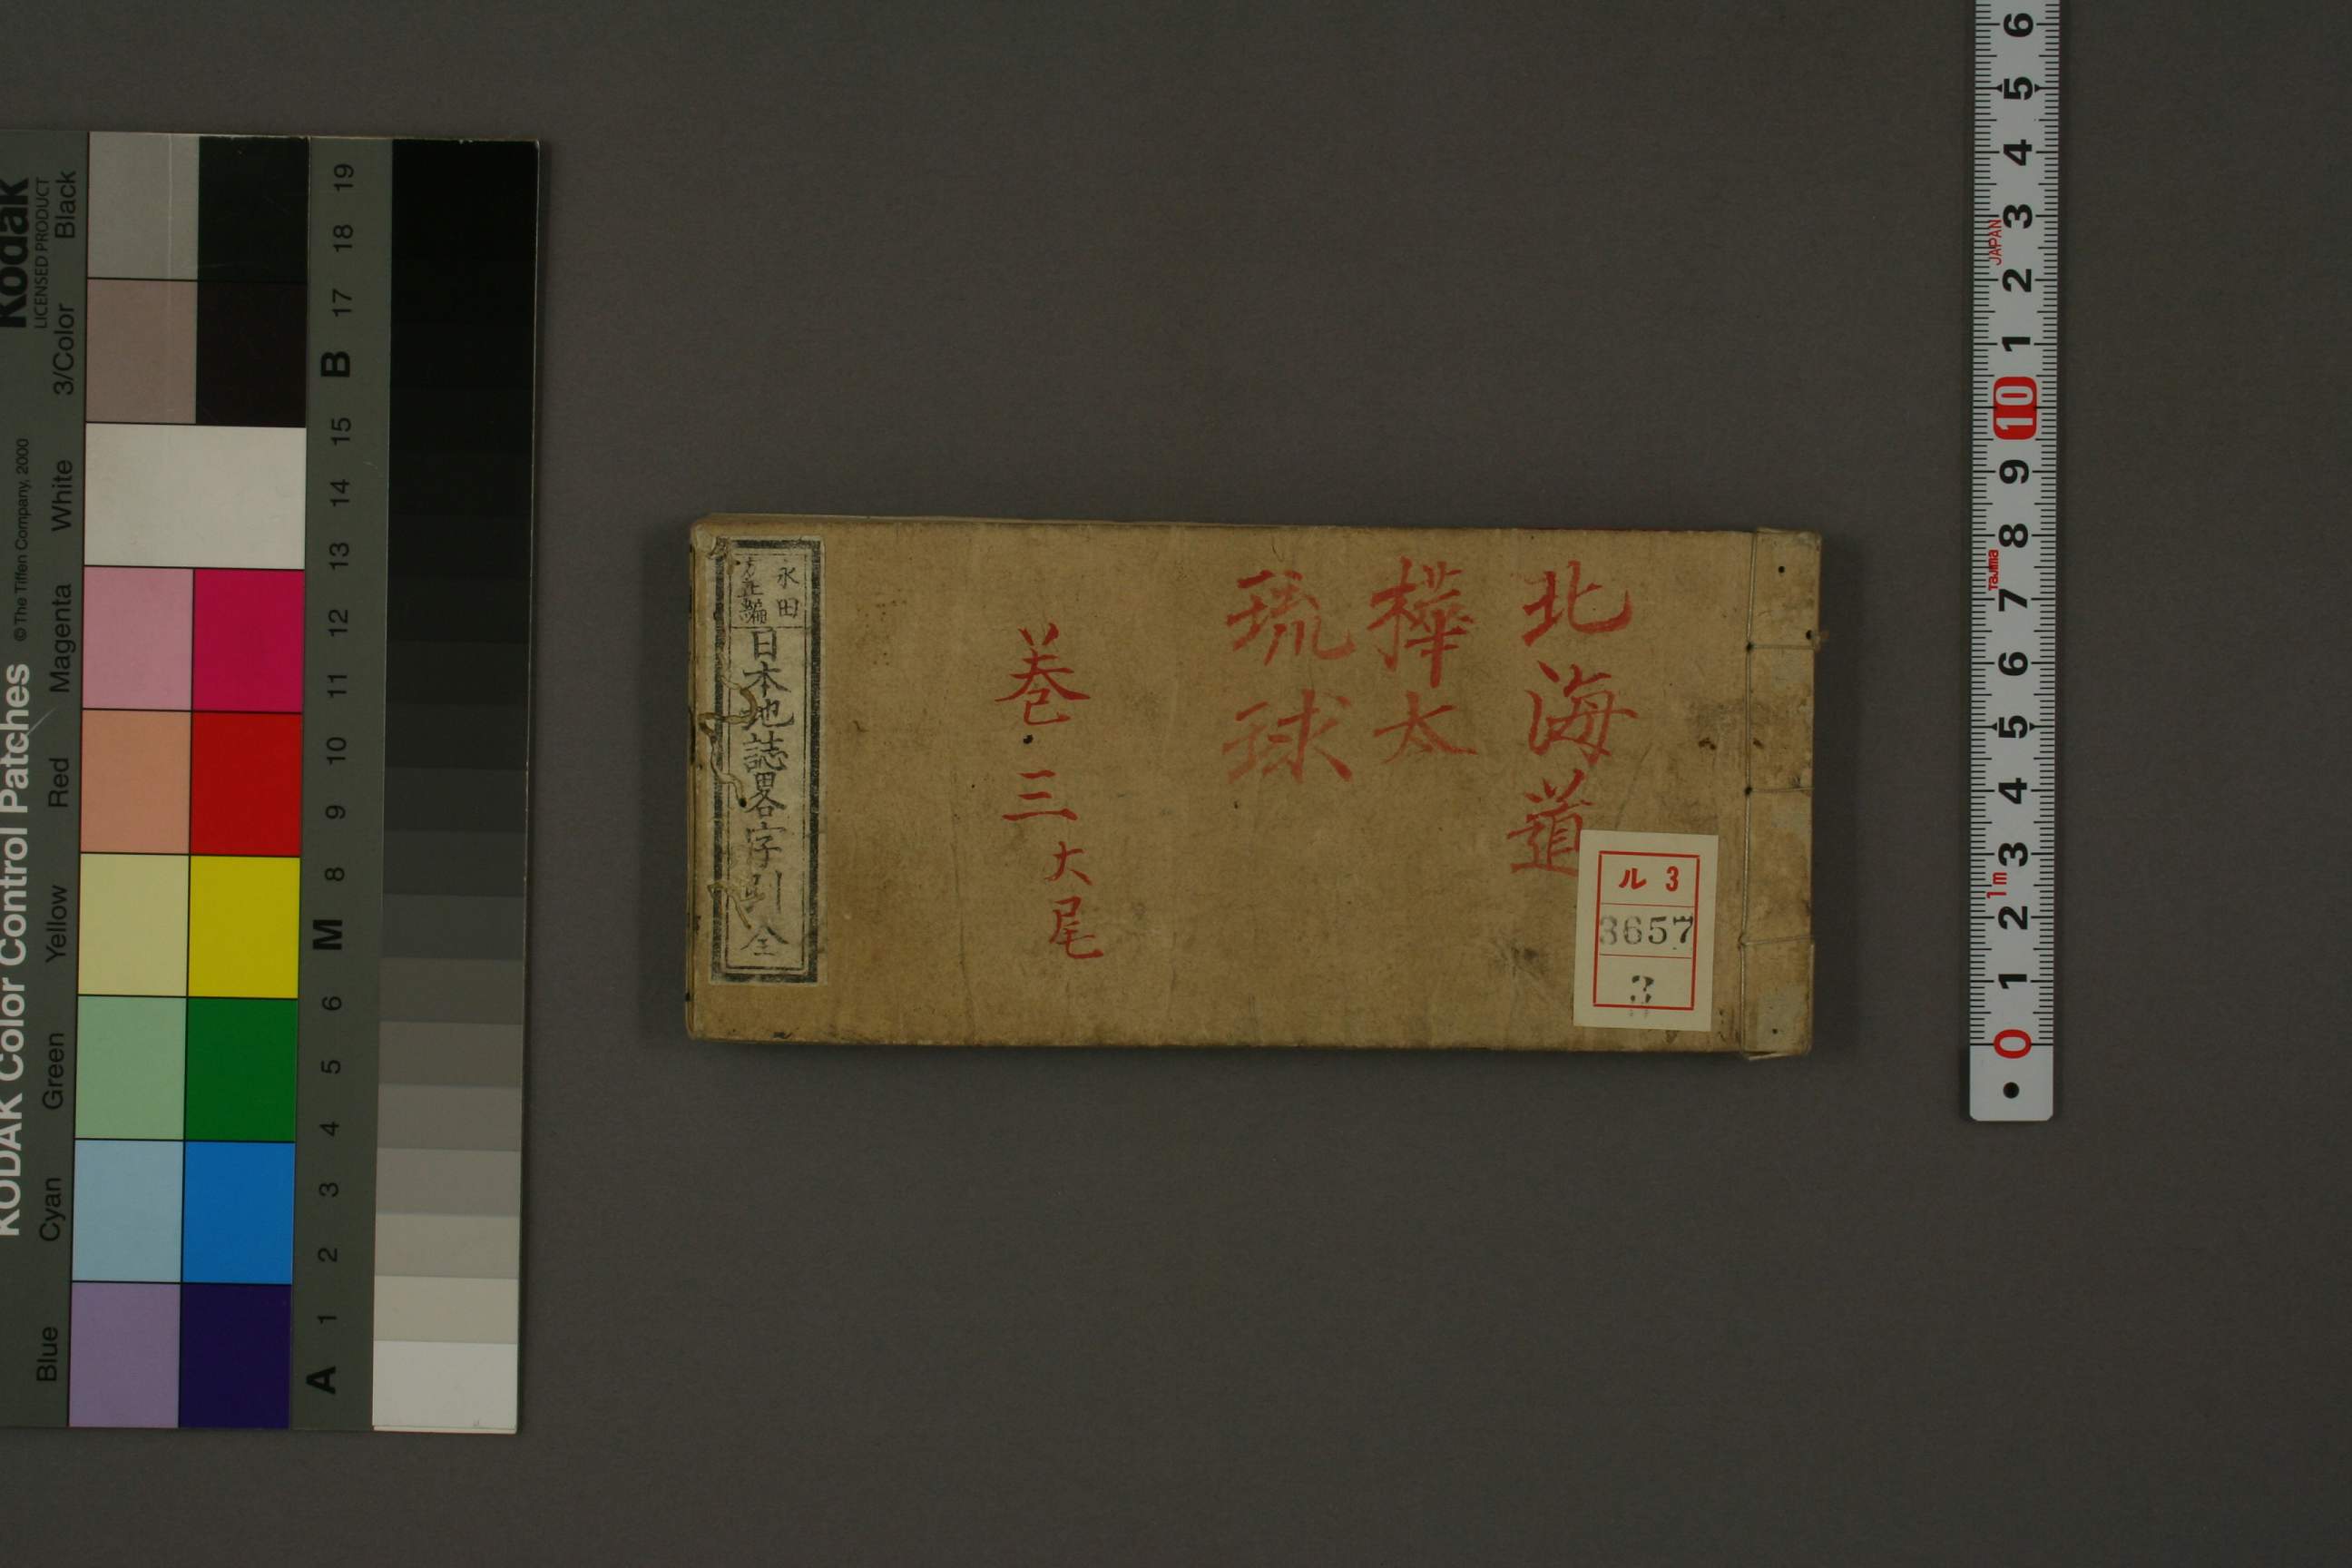 北海道
樺太
琉球
巻三大尾
永田
方正編
日本地誌畧字引 全
ル 3
3657
3
KODAK Color Control Patches © The Tiffen Company, 2000
Kodak
LICENSED PRODUCT
Blue Cyan Green Yellow Red Magenta White 3/Color Black
A 1 2 3 4 5 6 M 8 9 10 11 12 13 14 15 B 17 18 19
0 1 2 3 4 5 6 7 8 9 10 1 2 3 4 5 6
1m
Tajima
JAPAN